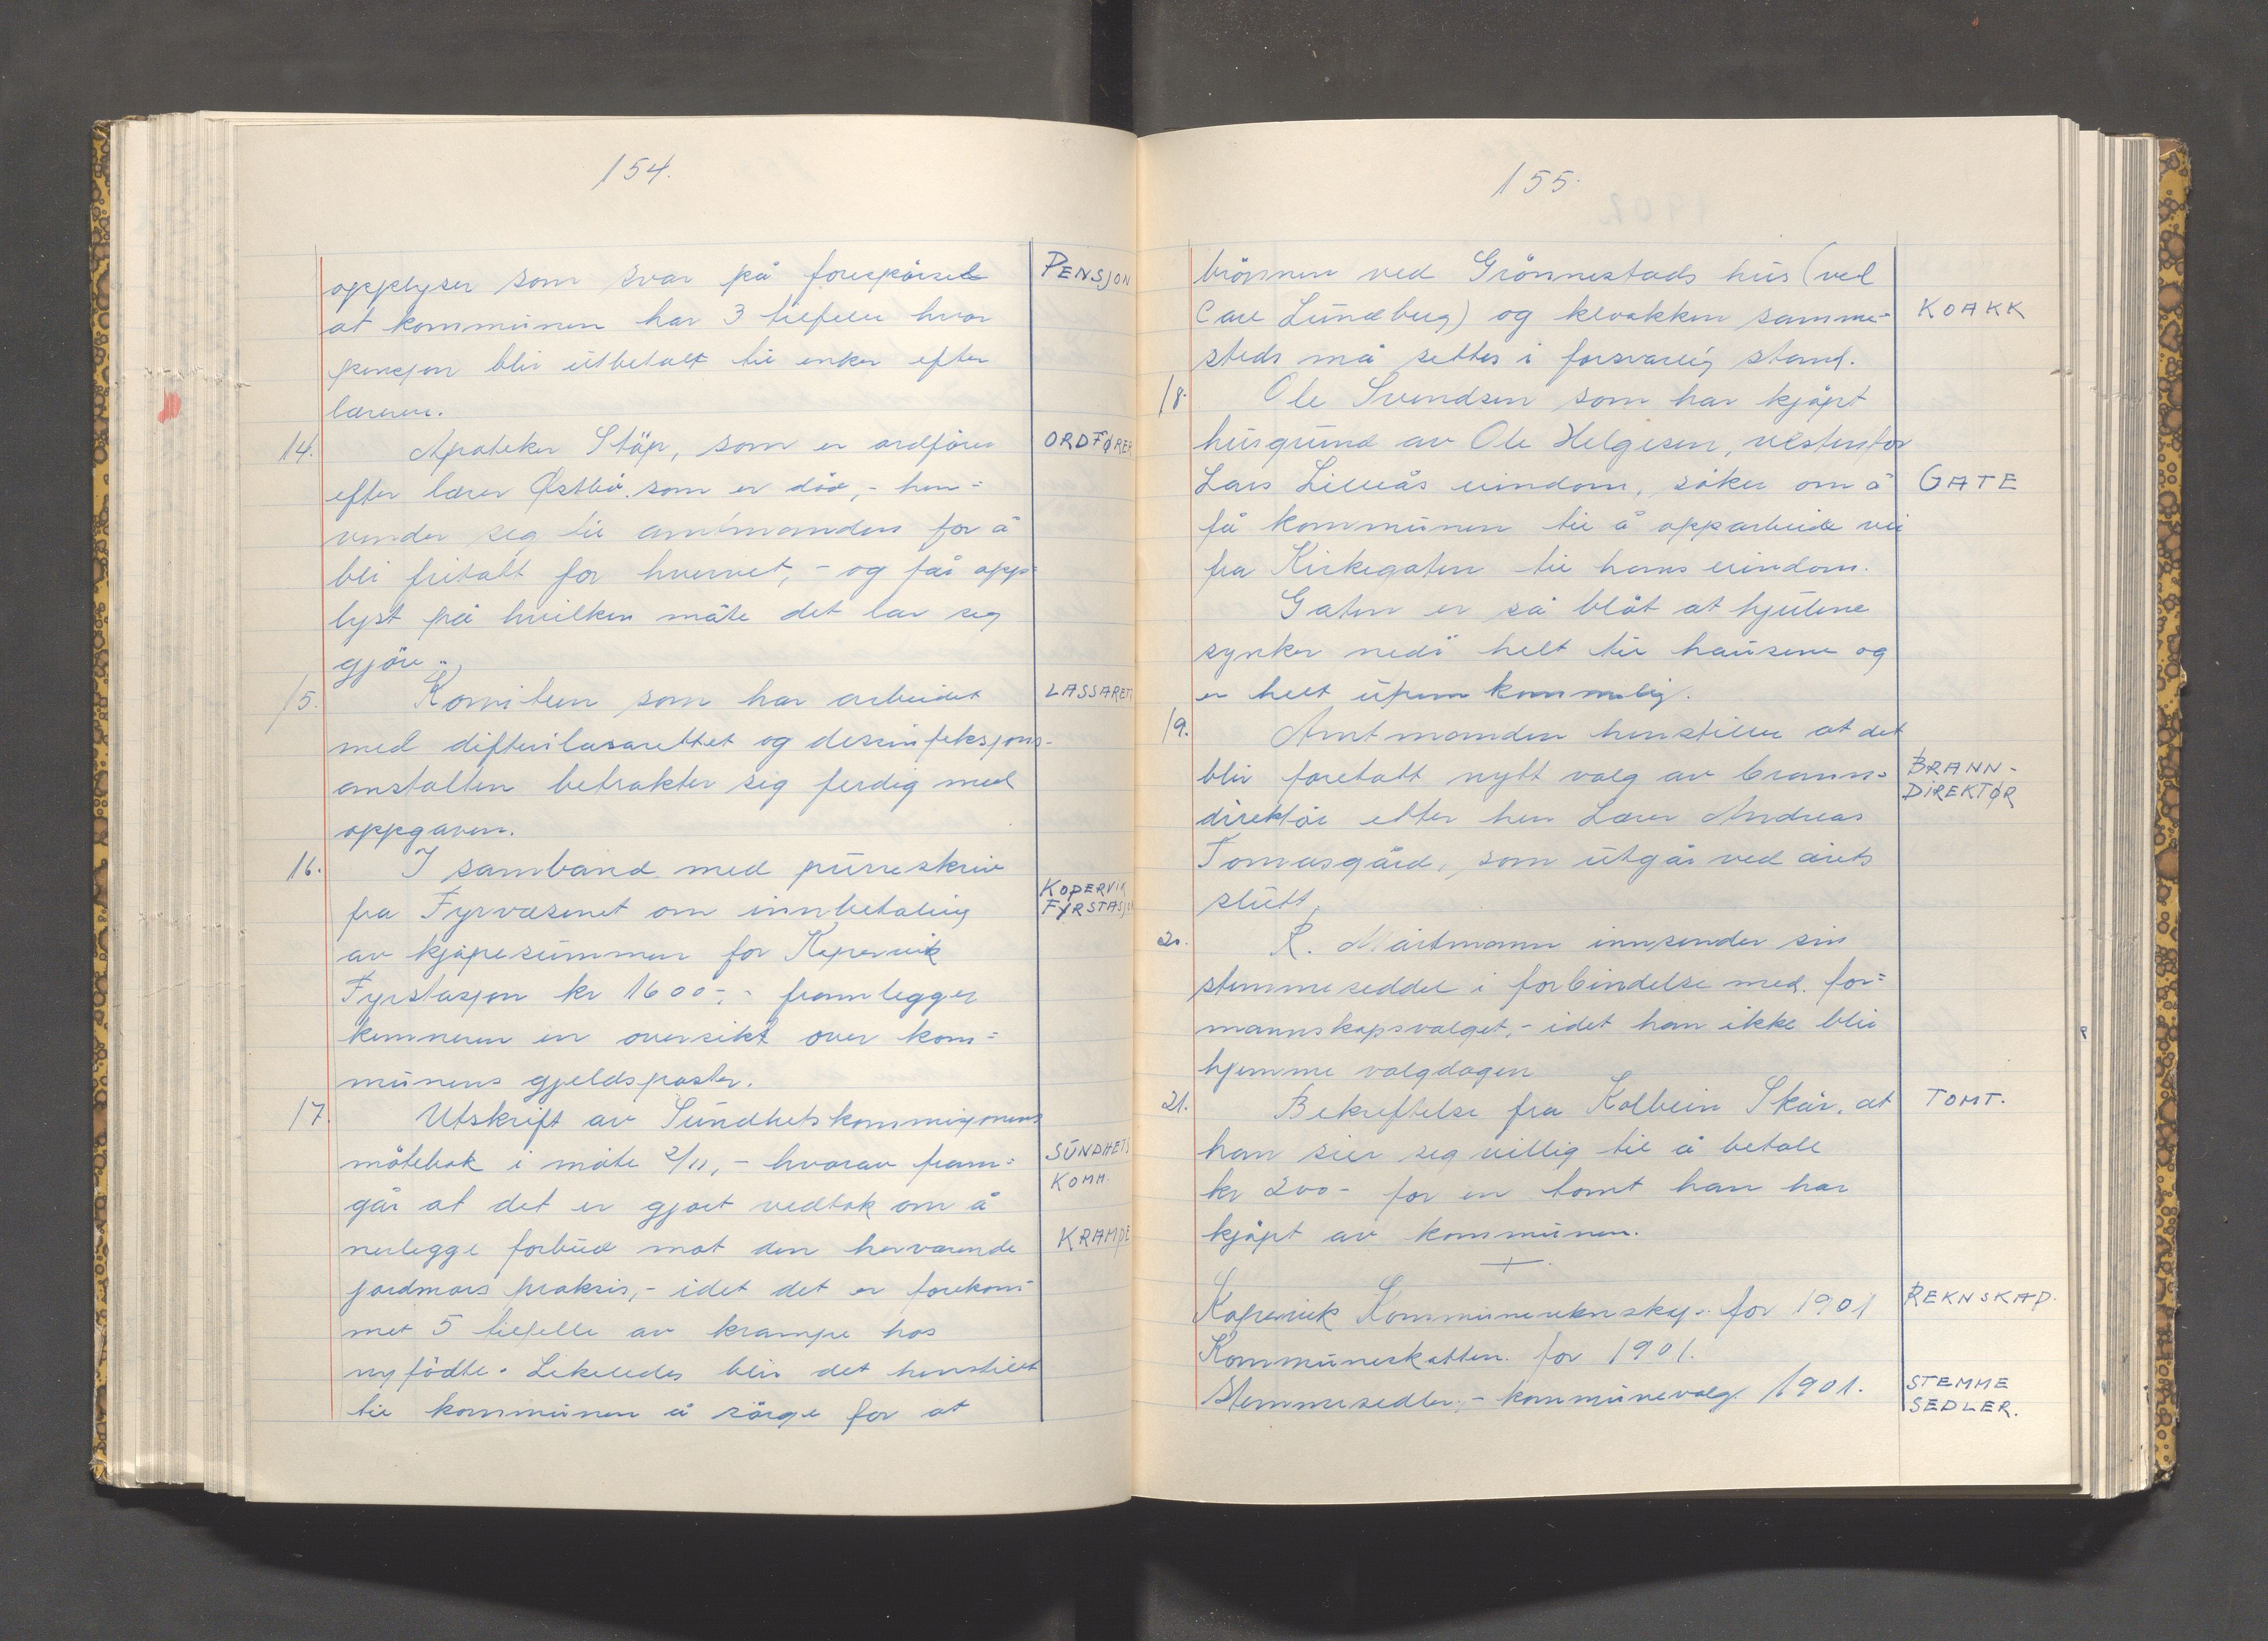 154.
opplyser som svar på forespörsel
PENSJON
at kommunen har 3 tilfelle hvor
pensjon blir utbetalt til enker efter
lærere.
14. Apoteker Stöp, som er ordförer
ORDFØRER
efter lærer Østbö. som er död, - hen-
vender seg til amtmanden for å
bli fritatt for hvervet, - og får opp-
lyst på hvilken måte det lar seg
gjöre.
15. Komiteen som har arbeidet
LASSARETT
med difterilasarettet og desinfeksjons-
anstalten betrakter sig ferdig med
oppgaven.
16. I samband med purreskriv
KOPERVIK
fra Fyrvæsenet om innbetaling
FYRSTASJON
av kjöpesummen for Kopervik
Fyrstasjon kr 1600-,- framlegger
kemneren en oversikt over kom-
munens gjeldsposter.
17. Utskrift av Sundhetskommisjonens
mötebok i möte 2/11, - hvorav fram-
SUNDHETS
KOMM.
går at det er gjort vedtak om å
nerlegge forbud mot den herværende
KRAMPE
jordmors praksis, - idet det er forekom-
met 5 tilfelle av krampe hos
nyfödte. Likeledes blir det henstillet
til kommunen å sörge for at
155.
brönnen ved Grönnestads hus (ved
Carl Lundberg) og kloakken samme-
KOAKK
steds må settes i forsvarlig stand.
18. Ole Svendsen som har kjöpt
husgrund av Ole Helgesen, vestenfor
Lars Lilleås eiendom, söker om å
GATE
få kommunen til å opparbeide vei
fra Kirkegaten til hans eiendom.
Gaten er så blöt at hjulene
synker nedi helt til hausene og
er helt uframkommelig.
19. Amtmanden henstiller at det
blir foretatt nytt valg av brann-
BRANN-
DIREKTØR
direktör etter herr Lærer Andreas
Tomasgård, som utgår ved årets
slutt.
20. R. Mårtmann innsender sin
stemmeseddel i forbindelse med for-
mannskapsvalget, - idet han ikke blir
hjemme valgdagen
21. Bekreftelse fra Kolbein Skår, at
TOMT.
han sier seg villig til å betale
kr 200- for en tomt han har
kjöpt av kommunen.
Kopervik Kommunereknskap. for 1901
REKNSKAP.
Kommuneskatten. for 1901.
Stemmesedler, - kommunevalg 1901.
STEMME
SEDLER.